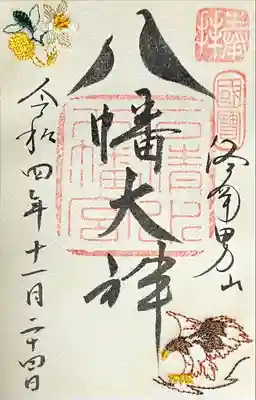 奉拝
國寶
洛南男山
八幡大神
石清水
八幡宮
令和四年十一月二十四日